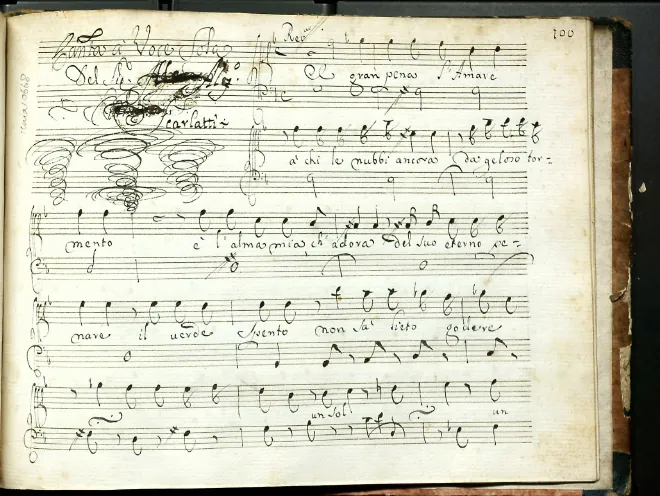 100
Cantata à Voce Sola
Del Sig.
Scarlatti
Rec.
gran pena l'Amare
à chi le nubbi ancora da geloso tor=
mento è l'alma mia ch'adora del suo eterno pe=
nare il verde spento non sà lieto godere
un sol un